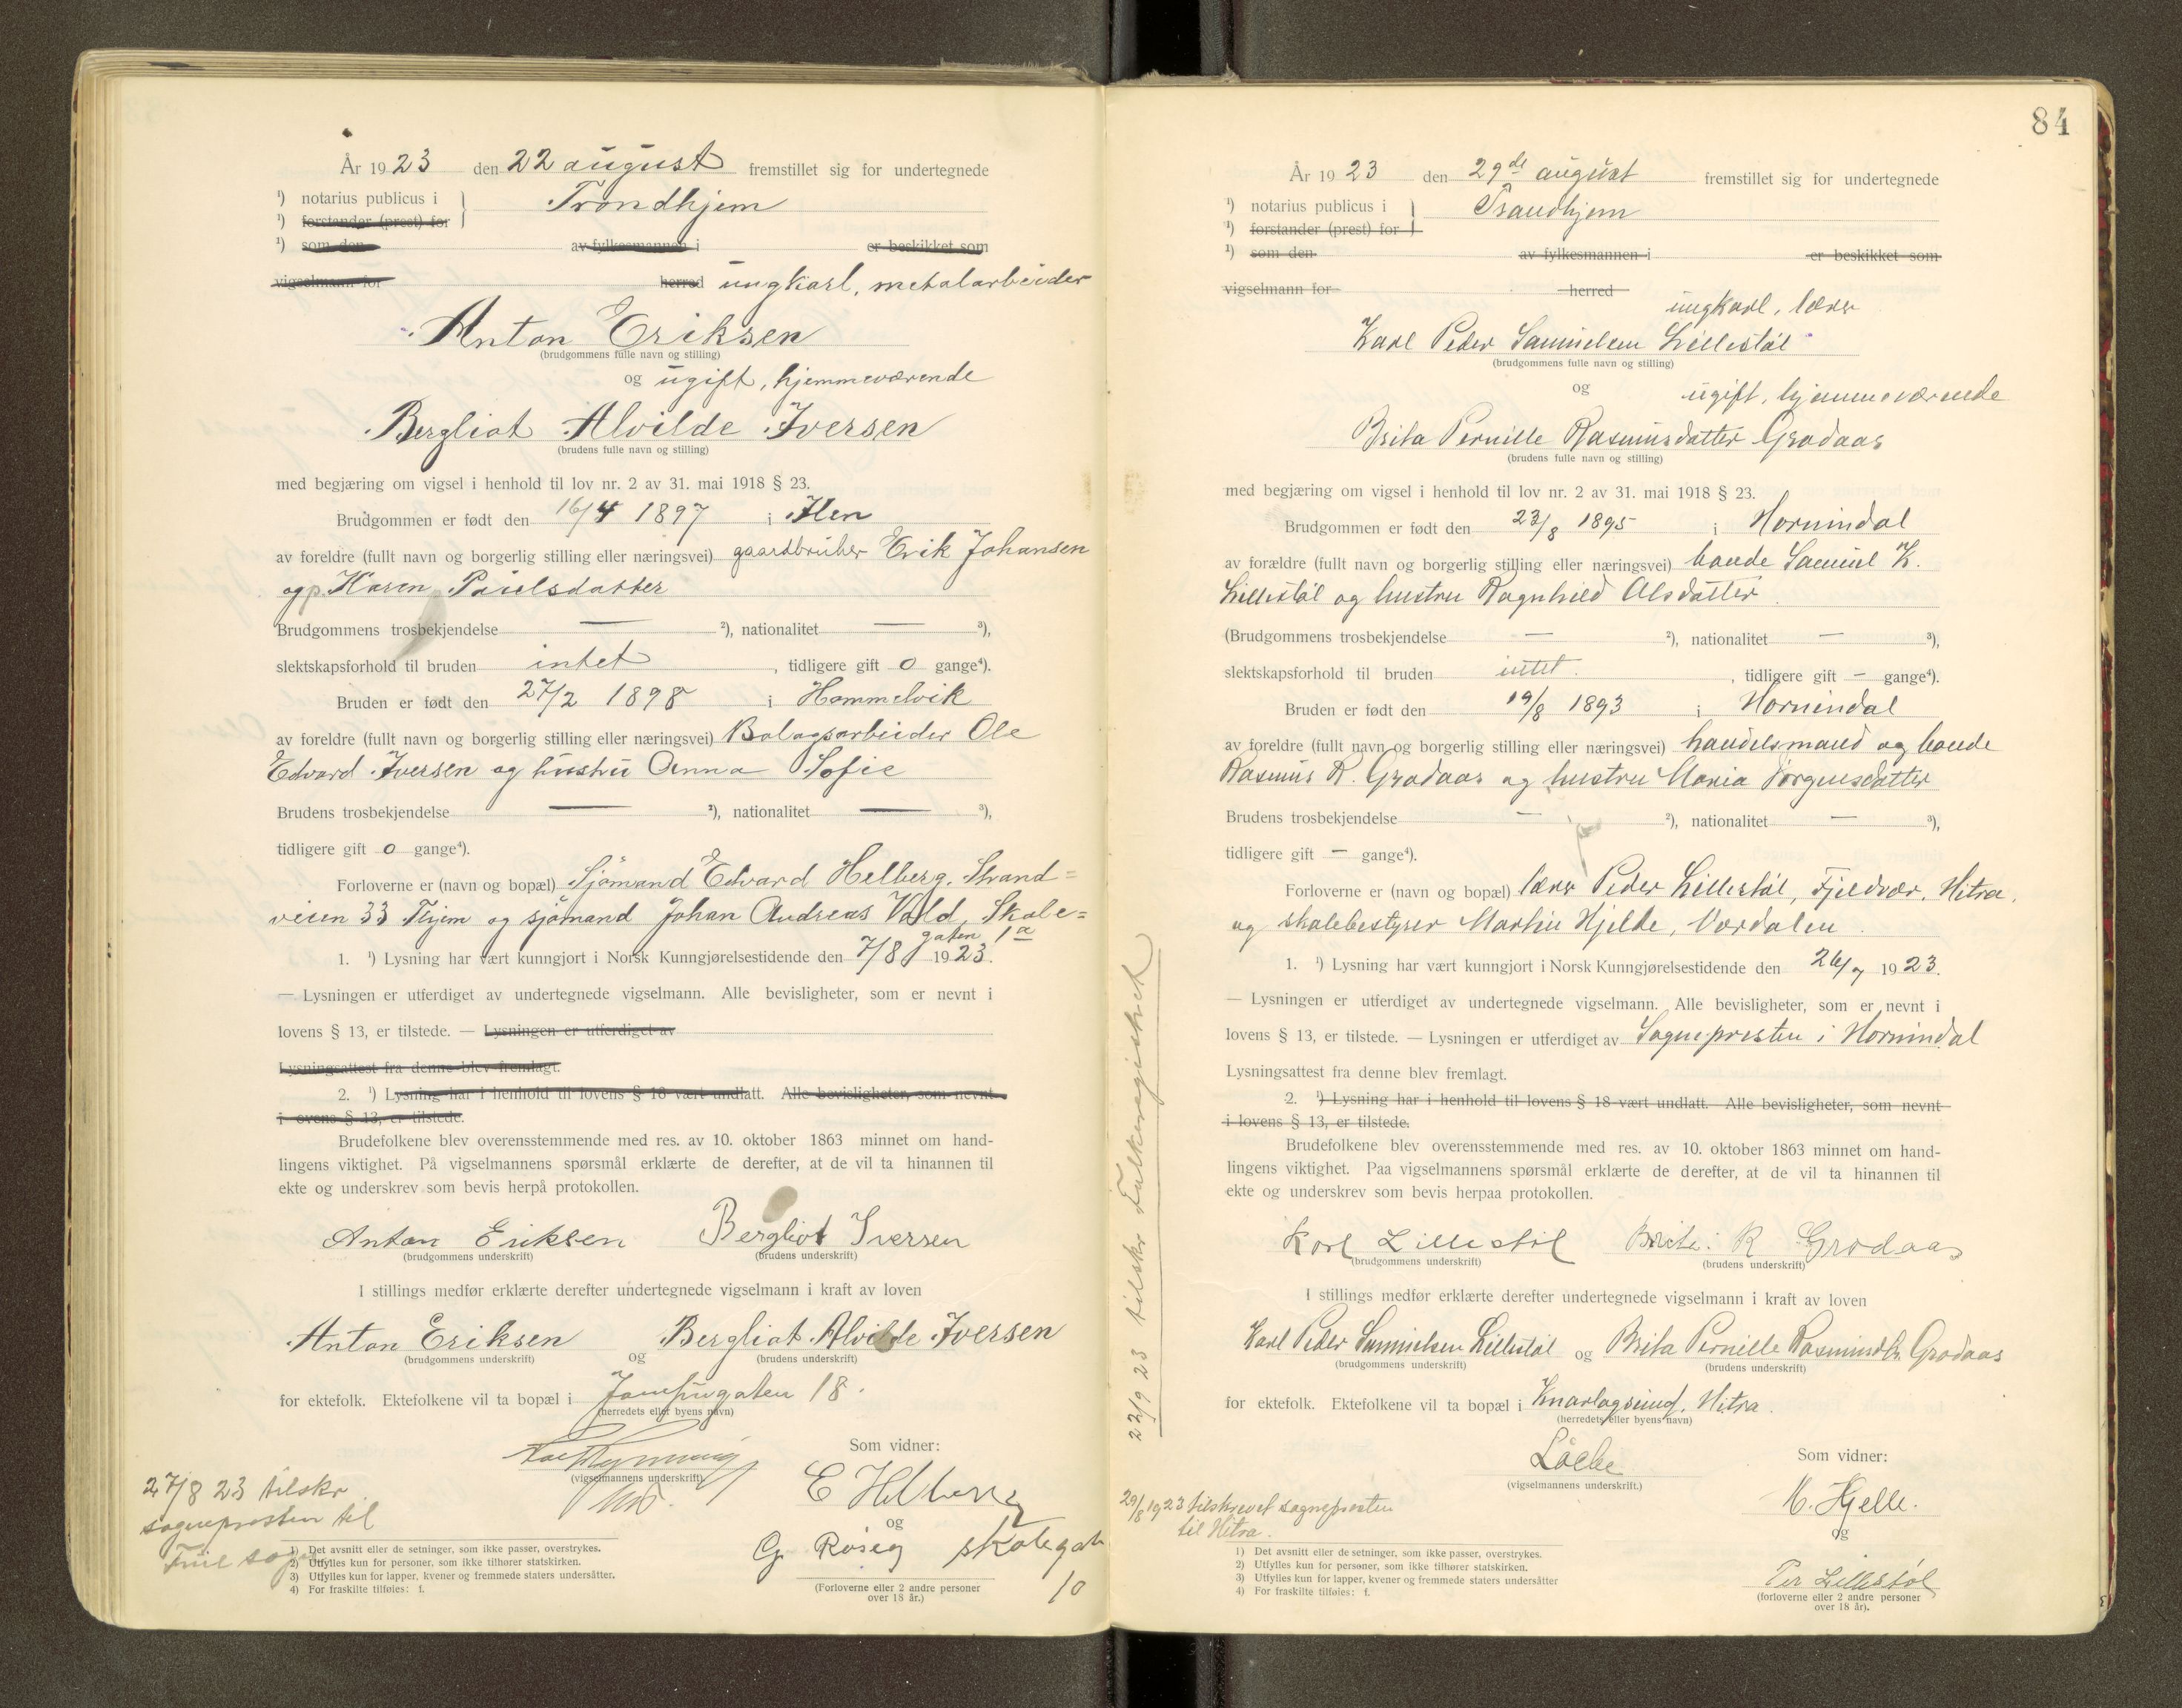 År 1923 den 22 august fremstillet sig for undertegnede
¹) notarius publicus i Trondhjem
¹) forstander (prest) for
¹) som den av fylkesmannen i er beskikket som
vigselmann for herred ungkarl, metalarbeider
Anton Eriksen
(brudgommens fulle navn og stilling)
og ugift, hjemmeværende
Bergliot Alvilde Iversen
(brudens fulle navn og stilling)
med begjæring om vigsel i henhold til lov nr. 2 av 31. mai 1918 § 23.
Brudgommen er født den 16/4 1897 i Ilen
av foreldre (fullt navn og borgerlig stilling eller næringsvei) gaardbruker Erik Johansen
og Karen Paulsdatter
Brudgommens trosbekjendelse — ²), nationalitet — ³),
slektskapsforhold til bruden intet, tidligere gift 0 gange⁴).
Bruden er født den 27/2 1898 i Hommelvik
av foreldre (fullt navn og borgerlig stilling eller næringsvei) Bolagsarbeider Ole
Edvard Iversen og hustru Anna Sofie
Brudens trosbekjendelse — ²), nationalitet — ³),
tidligere gift 0 gange⁴).
Forloverne er (navn og bopæl) Sjömand Edvard Helberg, Strand=
veien 33 Thjem og sjömand Johan Andreas Vold, Skole=
gaten 1a
1. ¹) Lysning har vært kunngjort i Norsk Kunngjørelsestidende den 7/8 1923.
— Lysningen er utferdiget av undertegnede vigselmann. Alle bevisligheter, som er nevnt i
lovens § 13, er tilstede. — Lysningen er utferdiget av
Lysningsattest fra denne blev fremlagt.
2. ¹) Lysning har i henhold til lovens § 18 vært undlatt. Alle bevisligheter, som nevnt
i lovens § 13, er tilstede.
Brudefolkene blev overensstemmende med res. av 10. oktober 1863 minnet om hand-
lingens viktighet. På vigselmannens spørsmål erklærte de derefter, at de vil ta hinannen til
ekte og underskrev som bevis herpå protokollen.
Anton Eriksen Bergliot Iversen
(brudgommens underskrift) (brudens underskrift)
I stillings medfør erklærte derefter undertegnede vigselmann i kraft av loven
Anton Eriksen og Bergliot Alvilde Iversen
(brudgommens underskrift) (brudens underskrift)
for ektefolk. Ektefolkene vil ta bopæl i 18.
(herredets eller byens navn)
Som vidner:
(vigselmannens underskrift)
E Helberg
og
G Röseg Skolegat
10
(Forloverne eller 2 andre personer
over 18 år.)
27/8 23 tilskr.
sognepresten til
1) Det avsnitt eller de setninger, som ikke passer, overstrykes.
2) Utfylles kun for personer, som ikke tilhører statskirken.
3) Utfylles kun for lapper, kvener og fremmede staters undersåtter.
4) For fraskilte tilføies: f.
84
År 1923 den 29de august fremstillet sig for undertegnede
¹) notarius publicus i Trondhjem
¹) forstander (prest) for
¹) som den av fylkesmannen i er beskikket som
vigselmann for herred
ungkarl, lærer
Karl Peder Samuelsen Lillestöl
(brudgommens fulle navn og stilling)
og ugift, hjemmeværende
Brita Pernille Rasmusdatter Grodaas
(brudens fulle navn og stilling)
med begjæring om vigsel i henhold til lov nr. 2 av 31. mai 1918 § 23.
Brudgommen er født den 23/8 1895 i Hornindal
av forældre (fullt navn og borgerlig stilling eller næringsvei) bonde Samuel K.
Lillestöl og hustru Ragnhild Olsdatter
(Brudgommens trosbekjendelse — ²), nationalitet — ³),
slektskapsforhold til bruden intet., tidligere gift – gange⁴).
Bruden er født den 19/8 1893 i Hornindal
av foreldre (fullt navn og borgerlig stilling eller næringsvei) handelsmand og bonde
Rasmus R. Grodaas og hustru Maria Jörgensdatter
Brudens trosbekjendelse — ²), nationalitet — ³),
tidligere gift – gange⁴).
Forloverne er (navn og bopæl) lærer Peder Lillestöl, Fjeldvær, Hitra,
og skolebestyrer Martin Hjelde, Værdalen.
1. ¹) Lysning har vært kunngjort i Norsk Kunngjørelsestidende den 26/7 1923.
— Lysningen er utferdiget av undertegnede vigselmann. Alle bevisligheter, som er nevnt i
lovens § 13, er tilstede. — Lysningen er utferdiget av Sognepresten i Hornindal
Lysningsattest fra denne blev fremlagt.
2. ¹) Lysning har i henhold til lovens § 18 vært undlatt. Alle bevisligheter, som nevnt
i lovens § 13, er tilstede.
Brudefolkene blev overensstemmende med res. av 10. oktober 1863 minnet om hand-
lingens viktighet. Paa vigselmannens spørsmål erklærte de derefter, at de vil ta hinannen til
ekte og underskrev som bevis herpaa protokollen.
Karl Lillestöl Brita R Grodaas
(brudgommens underskrift) (brudens underskrift)
I stillings medfør erklærte derefter undertegnede vigselmann i kraft av loven
Karl Peder Samuelsen Lillestöl og Brita Pernille Rasmusdtr. Grodaas
(brudgommens underskrift) (brudens underskrift)
for ektefolk. Ektefolkene vil ta bopæl i Knarlagsund, Hitra.
(herredets eller byens navn)
Som vidner:
(vigselmannens underskrift.)
M. Hjelle.
og
Per Lillestöl
(forloverne eller 2 andre personer
over 18 år).
29/8 1923 tilskrevet sognepresten
til Hitra.
22/9 23 tilskr Folkeregistret
1) Det avsnitt eller de setninger, som ikke passer, overstrykes.
2) Utfylles kun for personer, som ikke tilhører statskirken.
3) Utfylles kun for lapper, kvener og fremmede staters undersåtter
4) For fraskilte tilføies: f.